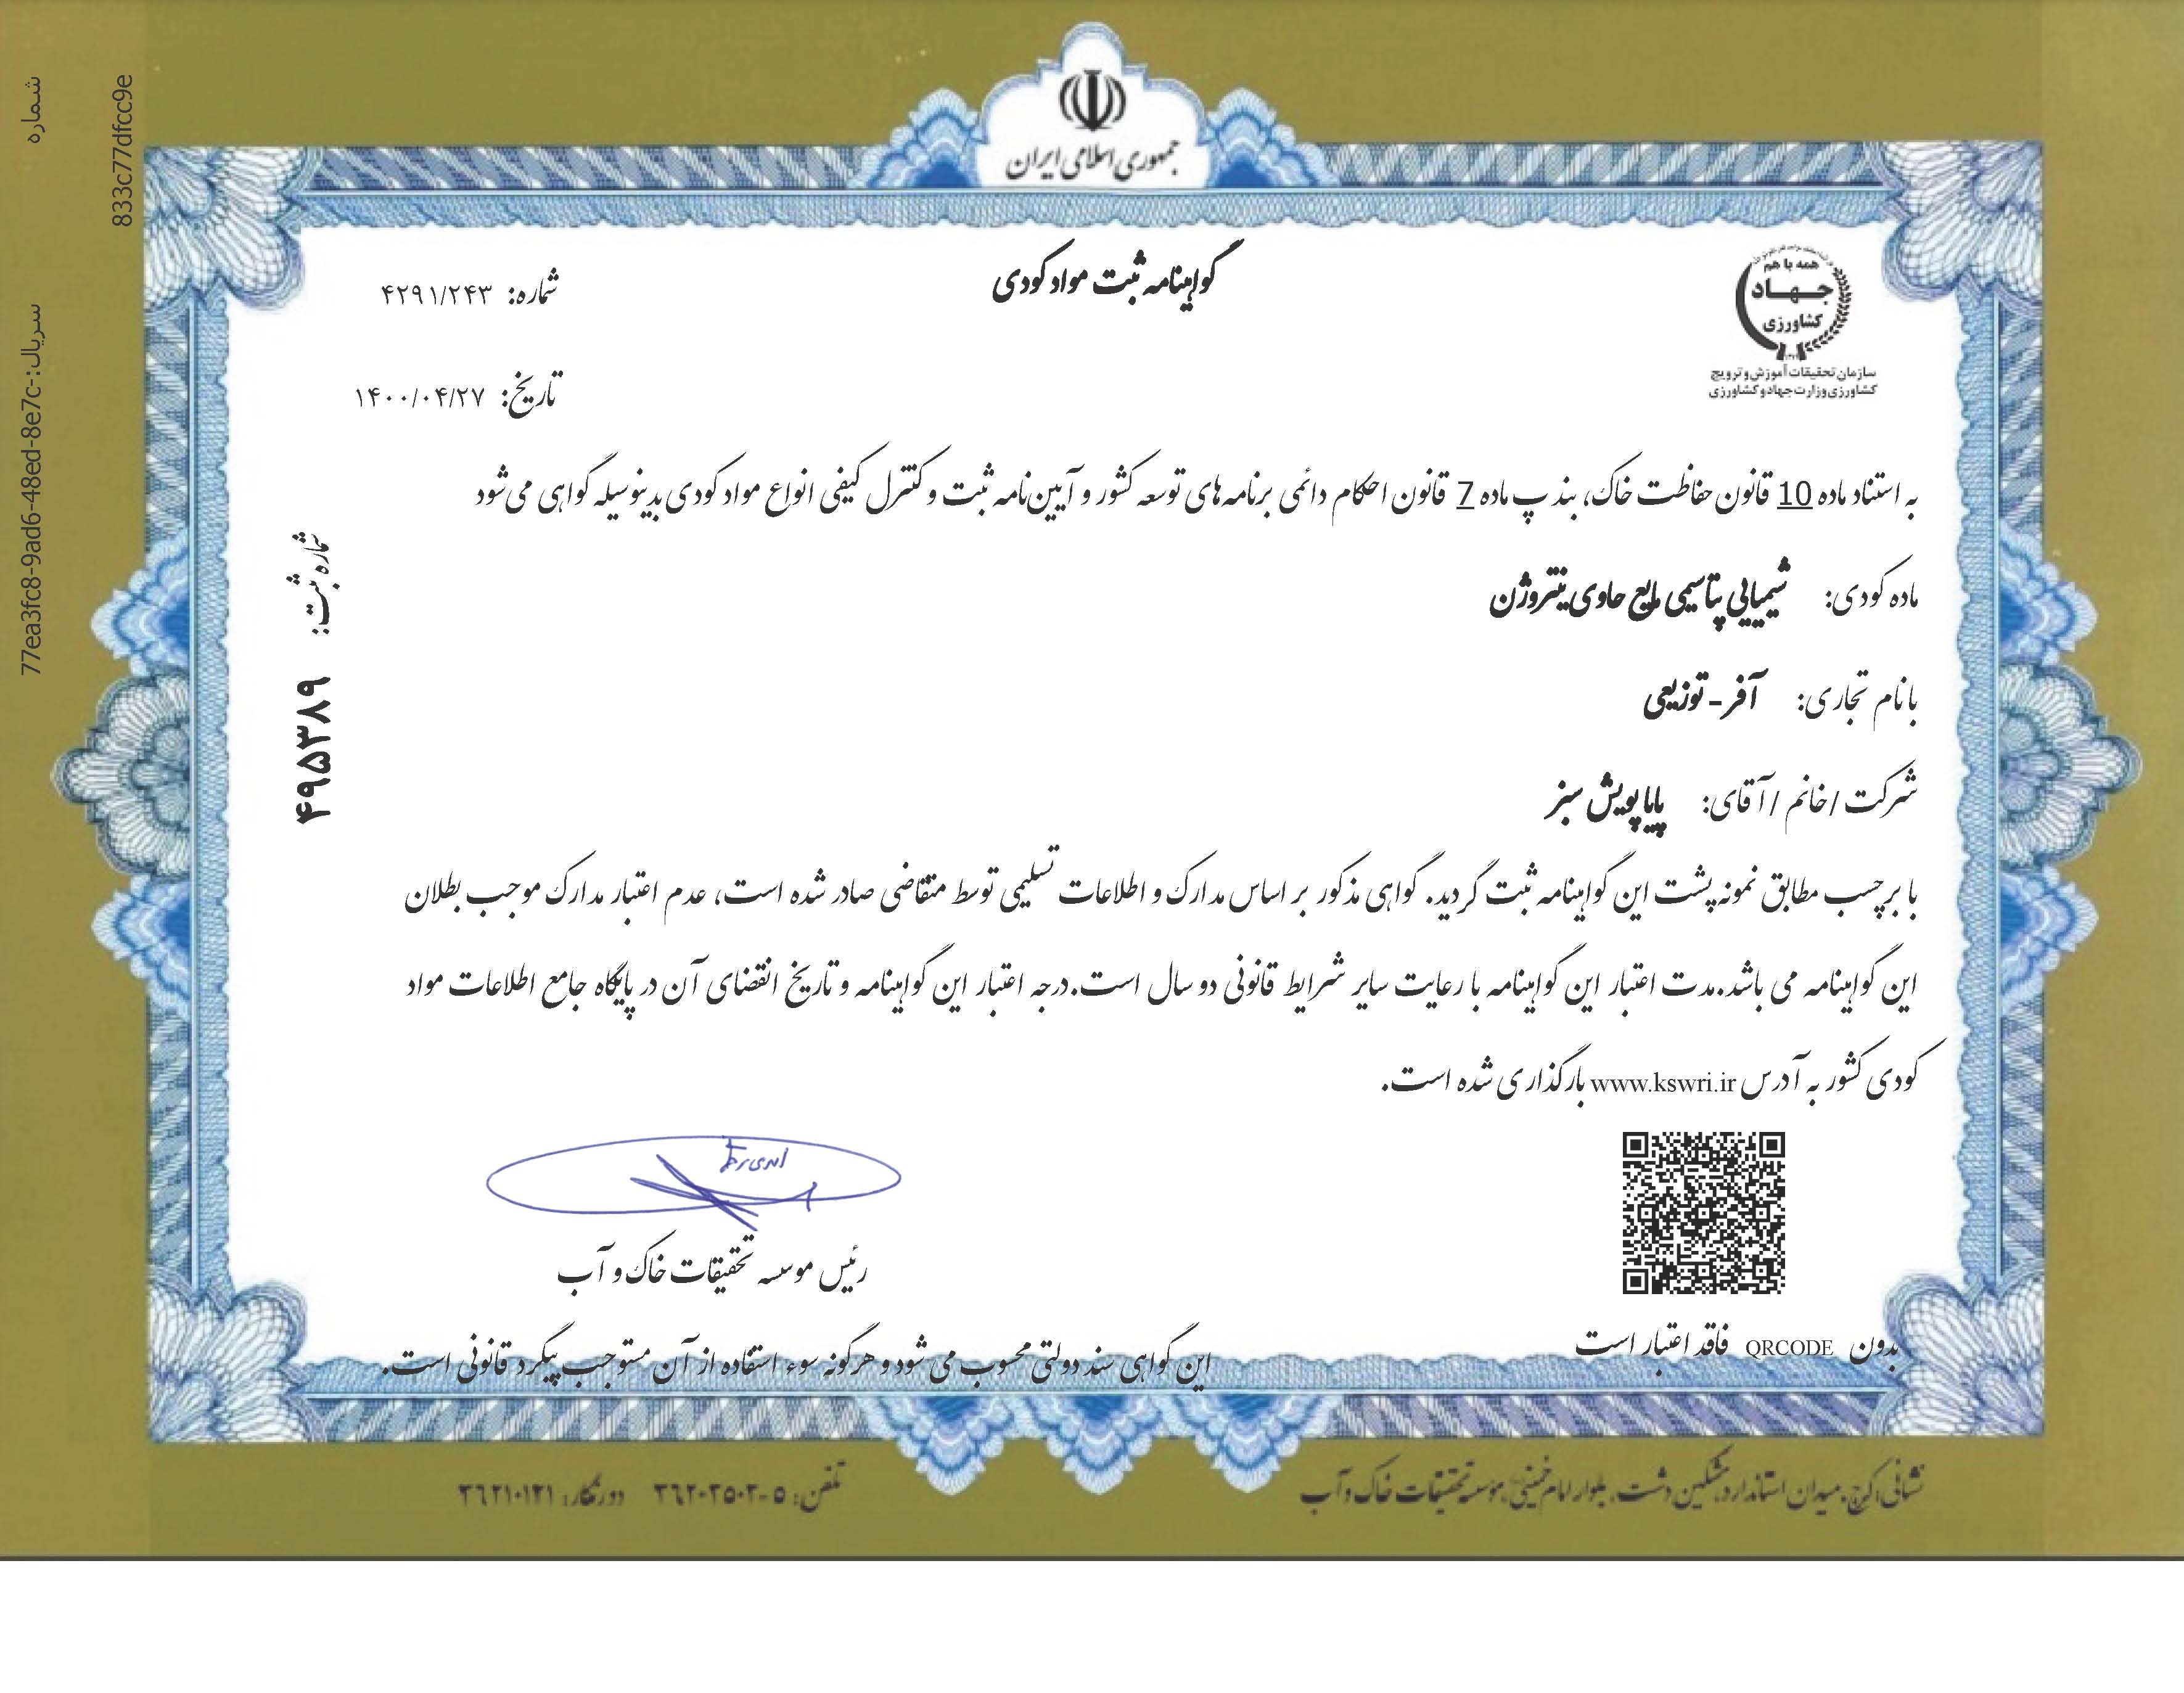 جمهوری اسلامی ایران
همه با هم
جهاد
کشاورزی
سازمان تحقیقات آموزش و ترویج
کشاورزی وزارت جهاد و کشاورزی
گواهینامه ثبت مواد کودی
شماره: ۴۲۹۱/۲۴۳
تاریخ: ۱۴۰۰/۰۴/۲۷
به استناد ماده 10 قانون حفاظت خاک، بند پ ماده 7 قانون احکام دائمی برنامه‌های توسعه کشور و آیین‌نامه ثبت و کنترل کیفی انواع مواد کودی بدینوسیله گواهی می‌شود
ماده کودی: شیمیایی پتاسیمی مایع حاوی نیتروژن
با نام تجاری: آفر - توزیعی
شرکت / خانم / آقای: پایا پویش سبز
شماره ثبت: ۴۹۵۳۸۹
با برچسب مطابق نمونه پشت این گواهینامه ثبت گردید. گواهی مذکور بر اساس مدارک و اطلاعات تسلیمی توسط متقاضی صادر شده است، عدم اعتبار مدارک موجب بطلان
این گواهینامه می باشد.مدت اعتبار این گواهینامه با رعایت سایر شرایط قانونی دو سال است.درجه اعتبار این گواهینامه و تاریخ انقضای آن در پایگاه جامع اطلاعات مواد
کودی کشور به آدرس www.kswri.ir بارگذاری شده است.
رئیس موسسه تحقیقات خاک و آب
بدون QRCODE فاقد اعتبار است
این گواهی سند دولتی محسوب می شود و هرگونه سوء استفاده از آن مستوجب پیگرد قانونی است.
نشانی: کرج، میدان استاندارد، مشکین دشت، بلوار امام خمینی، موسسه تحقیقات خاک و آب
تلفن: ۵-۳۶۲۰۳۵۰۲ دورنگار: ۳۶۲۱۰۱۲۱
شماره
سریال: 77ea3fc8-9ad6-48ed-8e7c-
833c77dfcc9e